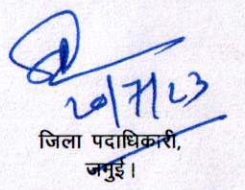 20/7/23
जिला पदाधिकारी,
जमुई।